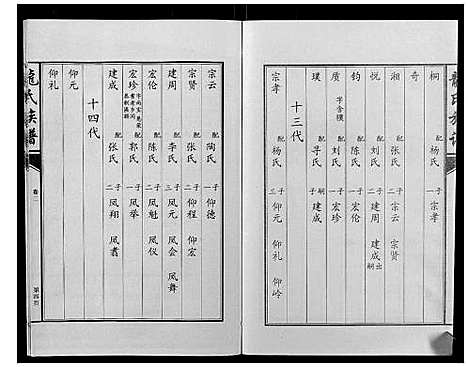 龍氏族譜
桐 配 杨氏 一子 宗孝
奇
湘 配 张氏 二子 宗云 宗贤
悦 配 刘氏 二子 建周 建成 出嗣
钧 配 陈氏 一子 宏伦
质 字含模 配 刘氏 一子 宏珍
璞 配 寻氏 嗣子 建成
十三代
宗孝 配 杨氏 三子 仰元 仰礼 仰岭
宗云 配 陶氏 一子 仰德
宗贤 配 张氏 二子 仰程 仰宏
建周 配 李氏 三子 凤元 凤会 凤舞
宏伦 配 陈氏 二子 凤魁 凤仪
宏珍 配 郭氏 一子 凤举
建成 配 张氏 二子 凤翔 凤翥
十四代
仰元
仰礼
龍氏族譜
卷二
第四页